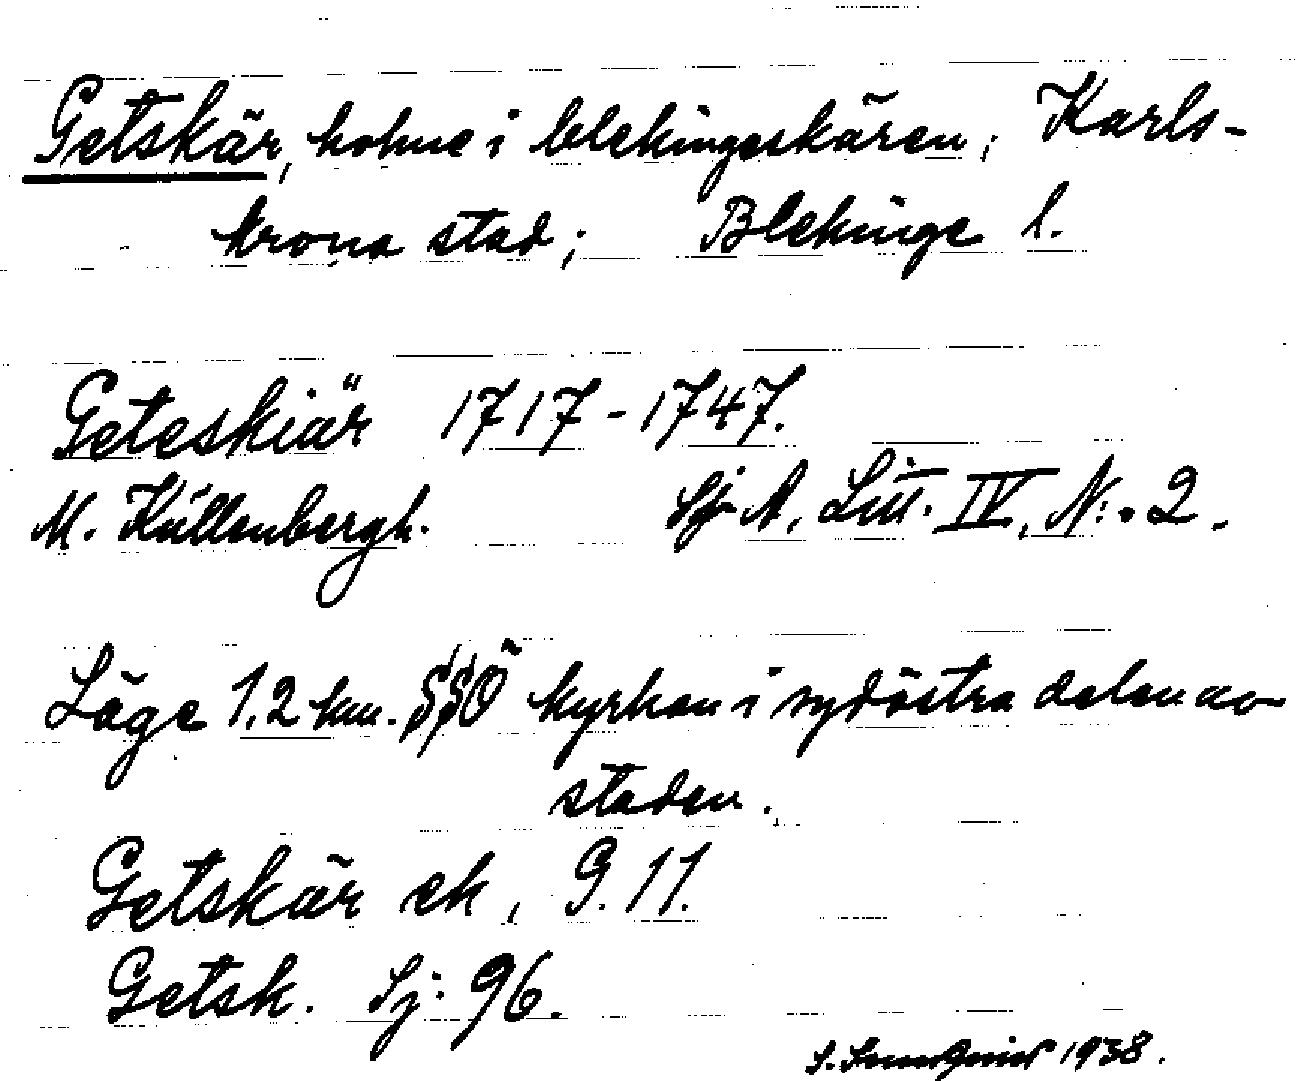 Getskär, holme i blekingeskären; Karls-
krona stad; Blekinge l.
Geteskiär 1717-1747.
M. Küllenbergh. Sj. A, Litt. IV, N:. 2.
Läge 1,2 km. SSÖ kyrkan i sydöstra delen av
staden.
Getskär ek, G. 11.
Getsk. Sj: 96.
1938.